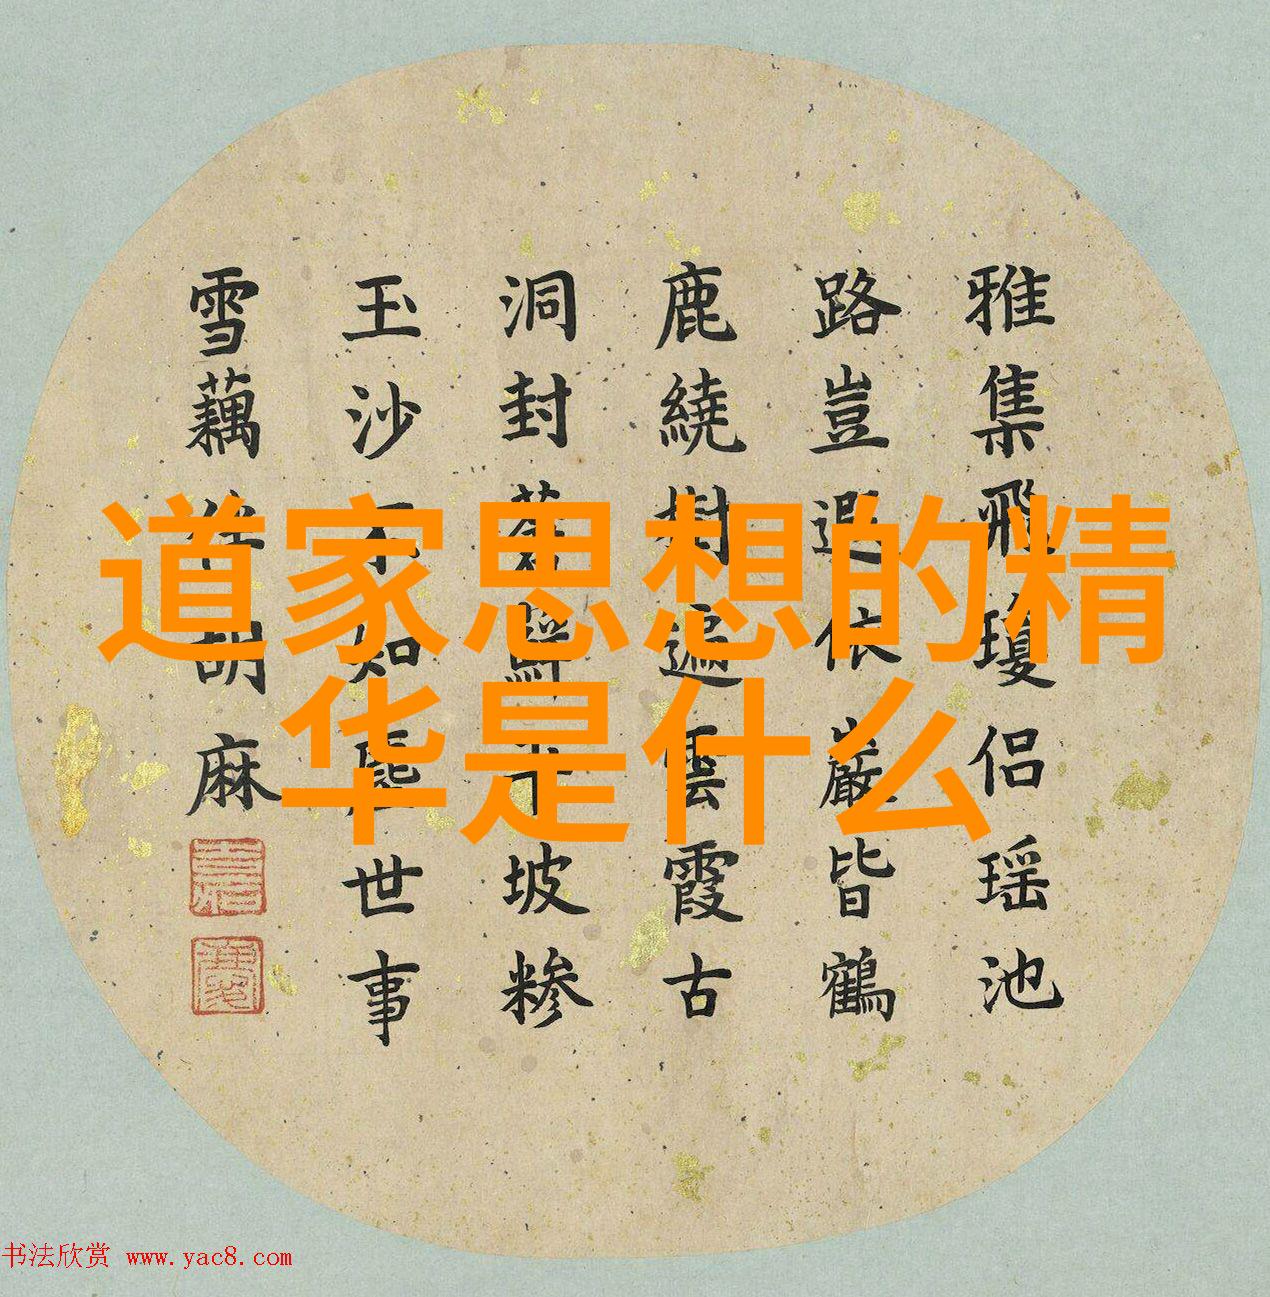 道家思想的精
华是什么
雅集飛瓊侶瑶池
路豈遐依巖皆鶴
鹿繞樹遍雲霞古
洞封
坡糁
玉沙不知
世事
雪藕
胡麻
书法欣赏 www.yac8.com